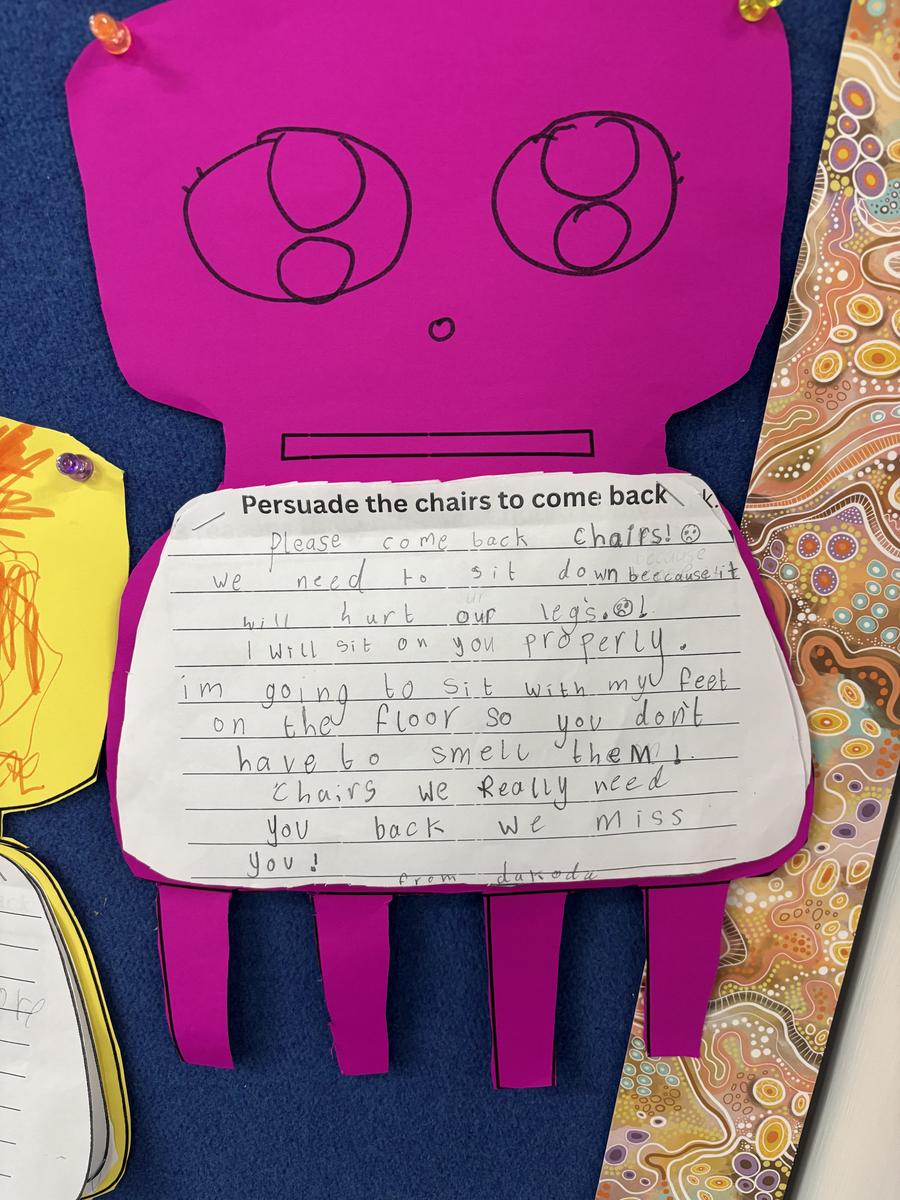 Persuade the chairs to come back
please come back Chairs! ☹
because
we need to sit down beecause it
ur
will hurt our legs.☹!
I will sit on you properly.
im going to sit with my feet
on the floor so you don't
have to smell theM!.
Chairs we Really need
you back we miss
you!
from dakoda